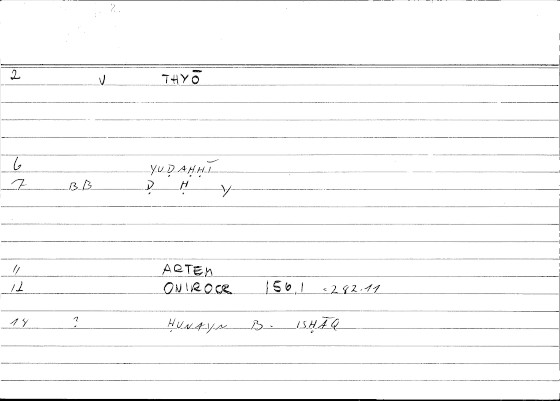 2 V THYŌ
6 YUḌAḤḤĪ
7 BB Ḍ Ḥ Y
11 ARTEM
12 ONIROCR 156,1 = 292.11
14 ? ḤUNAYN B. ISḤĀQ